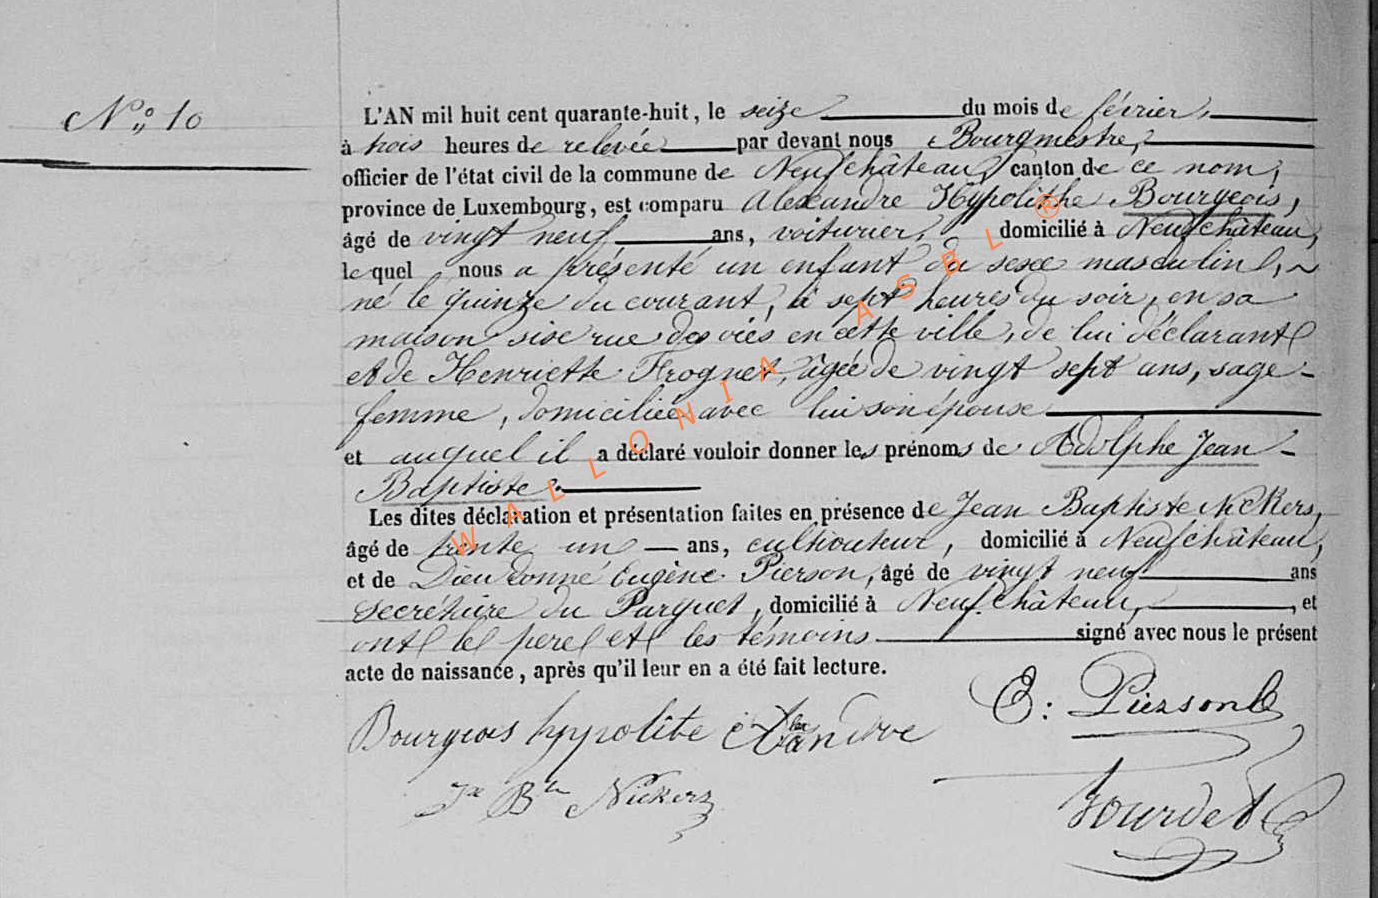 N° 10
L'AN mil huit cent quarante-huit, le seize du mois de février,
à trois heures de relevée par devant nous Bourgmestre,
officier de l'état civil de la commune de Neufchâteau, canton de ce nom,
province de Luxembourg, est comparu Alexandre Hypolithe Bourgeois,
âgé de vingt neuf ans, voiturier, domicilié à Neufchâteau,
lequel nous a présenté un enfant du sexe masculin,
né le quinze du courant, à sept heures du soir, en sa
maison sise rue des en cette ville, de lui déclarant
et de Henriette Frognet, âgée de vingt sept ans, sage-
femme, domiciliée avec lui son épouse
et auquel il a déclaré vouloir donner les prénoms de Adolphe Jean-
Baptiste.
Les dites déclaration et présentation faites en présence de Jean Baptiste Nickers,
âgé de trente un ans, cultivateur, domicilié à Neufchâteau,
et de Dieudonné Eugène Pierson, âgé de vingt neuf ans
secrétaire du Parquet, domicilié à Neufchâteau, et
ont le pere et les témoins signé avec nous le présent
acte de naissance, après qu'il leur en a été fait lecture.
Bourgeois hyppolite alexandre
E: Pierson
Jn Bte Nickers
Bourdet
WALLONIA ASBL ®